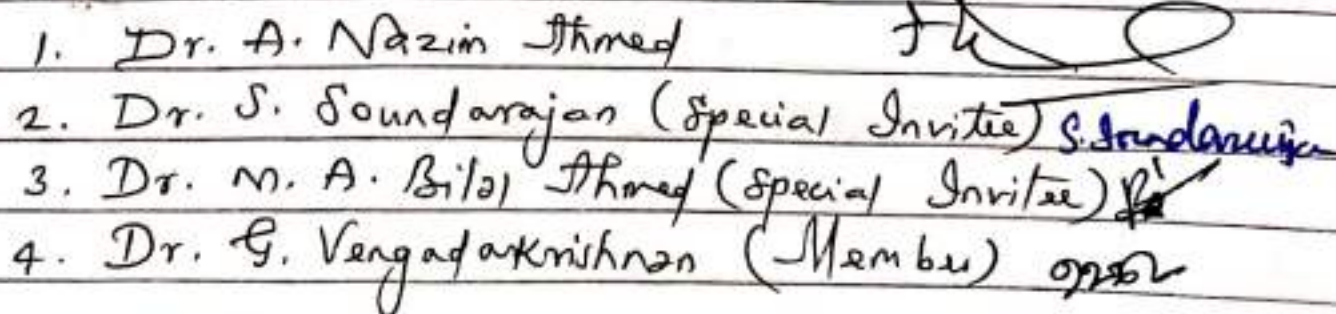 1. Dr. A. Nazim Ahmed
2. Dr. S. Soundarajan (Special Invitee) S. Soundararajan
3. Dr. M. A. Bilal Ahmed (Special Invitee)
4. Dr. G. Vengadakrishnan (Member)